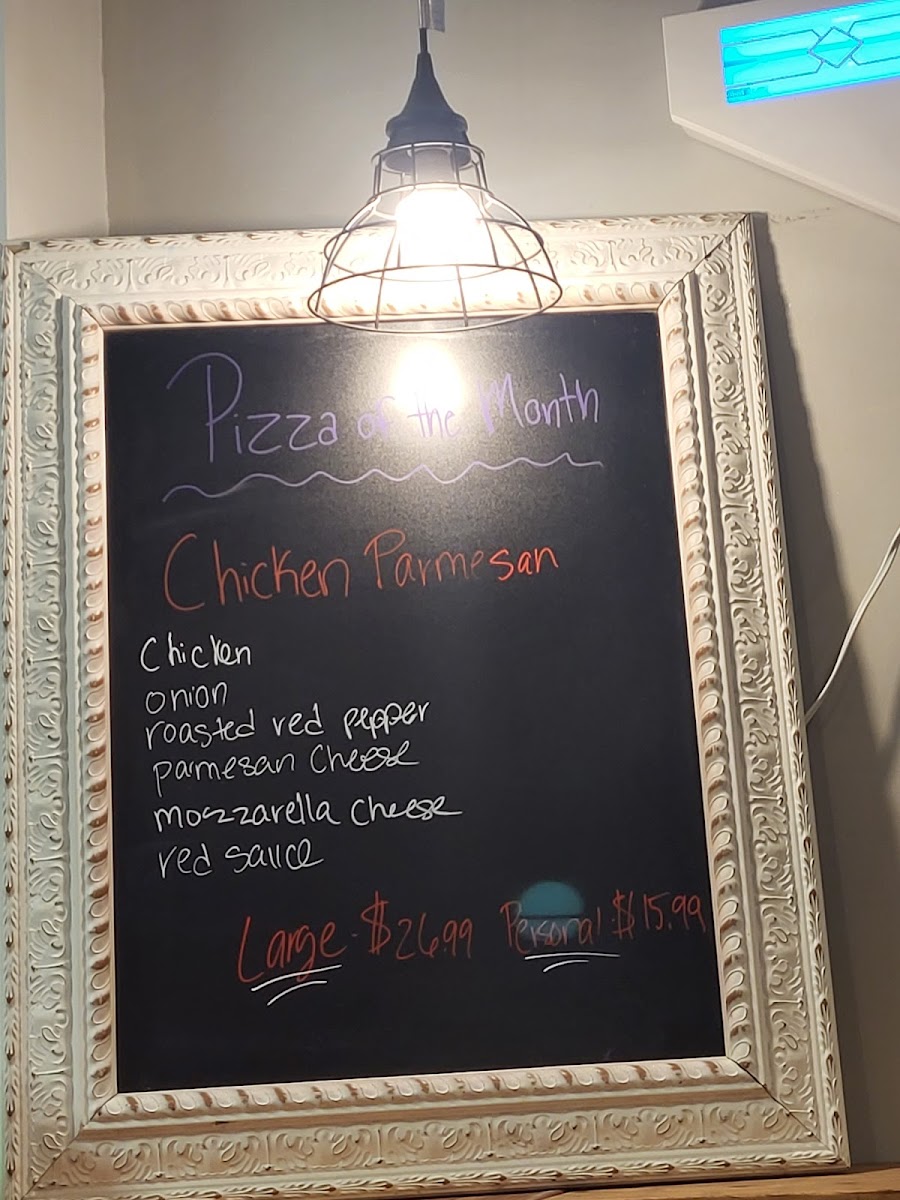 Pizza of the Month
Chicken Parmesan
Chicken
onion
roasted red pepper
parmesan Cheese
mozzarella cheese
red sauce
Large - $26.99 Personal - $15.99